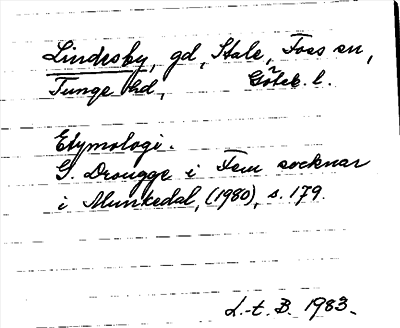 Lindesby, gd, Stale, Foss sn,
Tunge hd, Göteb. l.
Etymologi.
G. Drougge i Fem socknar
i Munkedal, (1980), s. 179.
L.-t. B. 1983.